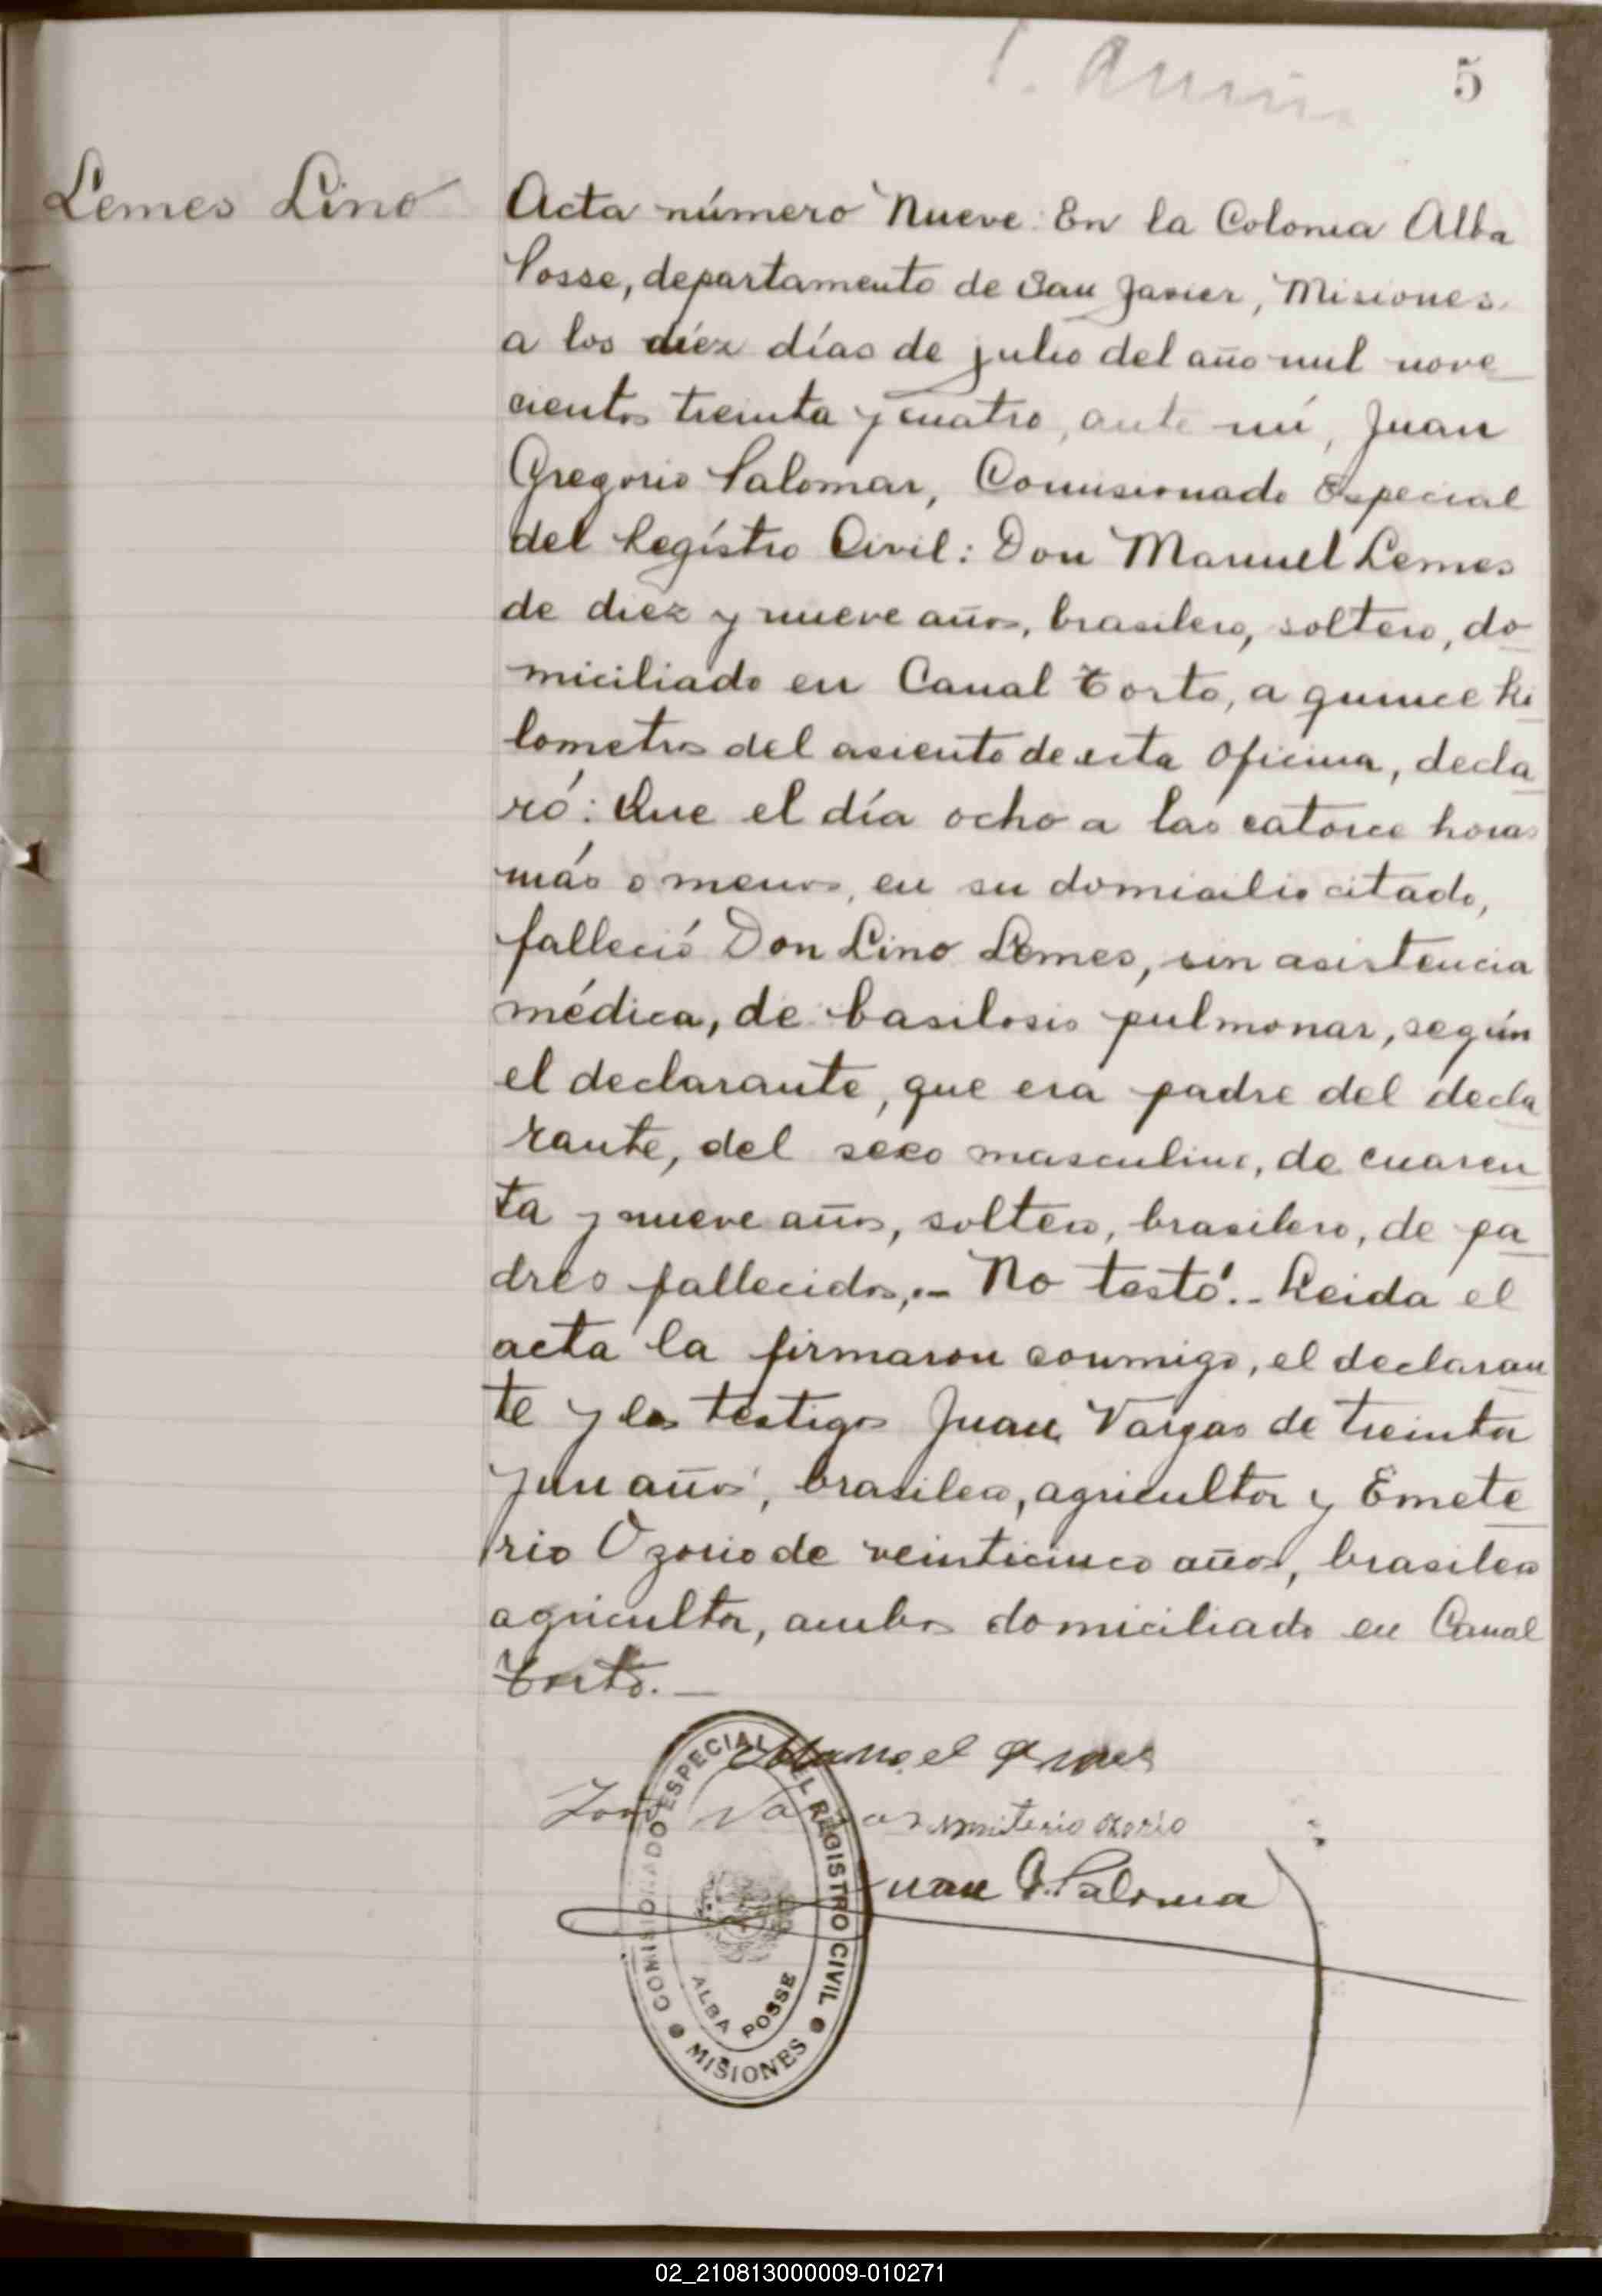 5
Lemes Lino
Acta número Nueve: En la Colonia Alba
Posse, departamento de San Javier, Misiones
a los diéz días de julio del año mil nove
cientos treinta y cuatro, ante mí, Juan
Gregorio Palomar, Comisionado Especial
del Regístro Civil: Don Manuel Lemes
de diez y nueve años, brasilero, soltero, do
miciliado en Canal Torto, a quince ki
lometros del asiento de esta Oficina, decla
ró: Que el día ocho a las catorce horas
más o menos, en su domicilio citado,
falleció Don Lino Lemes, sin asistencia
médica, de basilosis pulmonar, según
el declarante, que era padre del decla
rante, del sexo masculino, de cuaren
ta y nueve años, soltero, brasilero, de pa
dres fallecidos,.- No testó.- Leida el
acta la firmaron conmigo, el declaran
te y los testigos Juan Vargas de treinta
y un años, brasilero, agricultor y Emete
rio Ozorio de veinticinco años, brasilero
agricultor, ambos domiciliado en Canal
Torto.—
Manoel
Vargas
ozorio
Juan G. Palomar
COMISIONADO ESPECIAL DEL REGISTRO CIVIL
ALBA POSSE
MISIONES
02_210813000009-010271